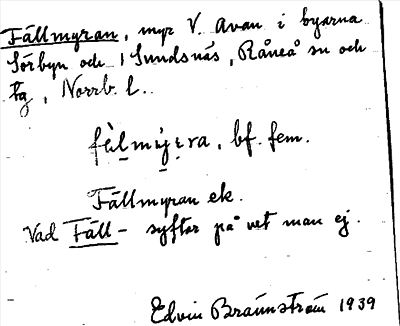 Fällmyran, myr V. Avan i byarna
Sörbyn och Sundsnäs, Råneå sn och
tg, Norrb. l.
fäl myra, bf. fem.
Fällmyran ek.
Vad Fäll- syftar på vet man ej.
Edvin Brännström 1939